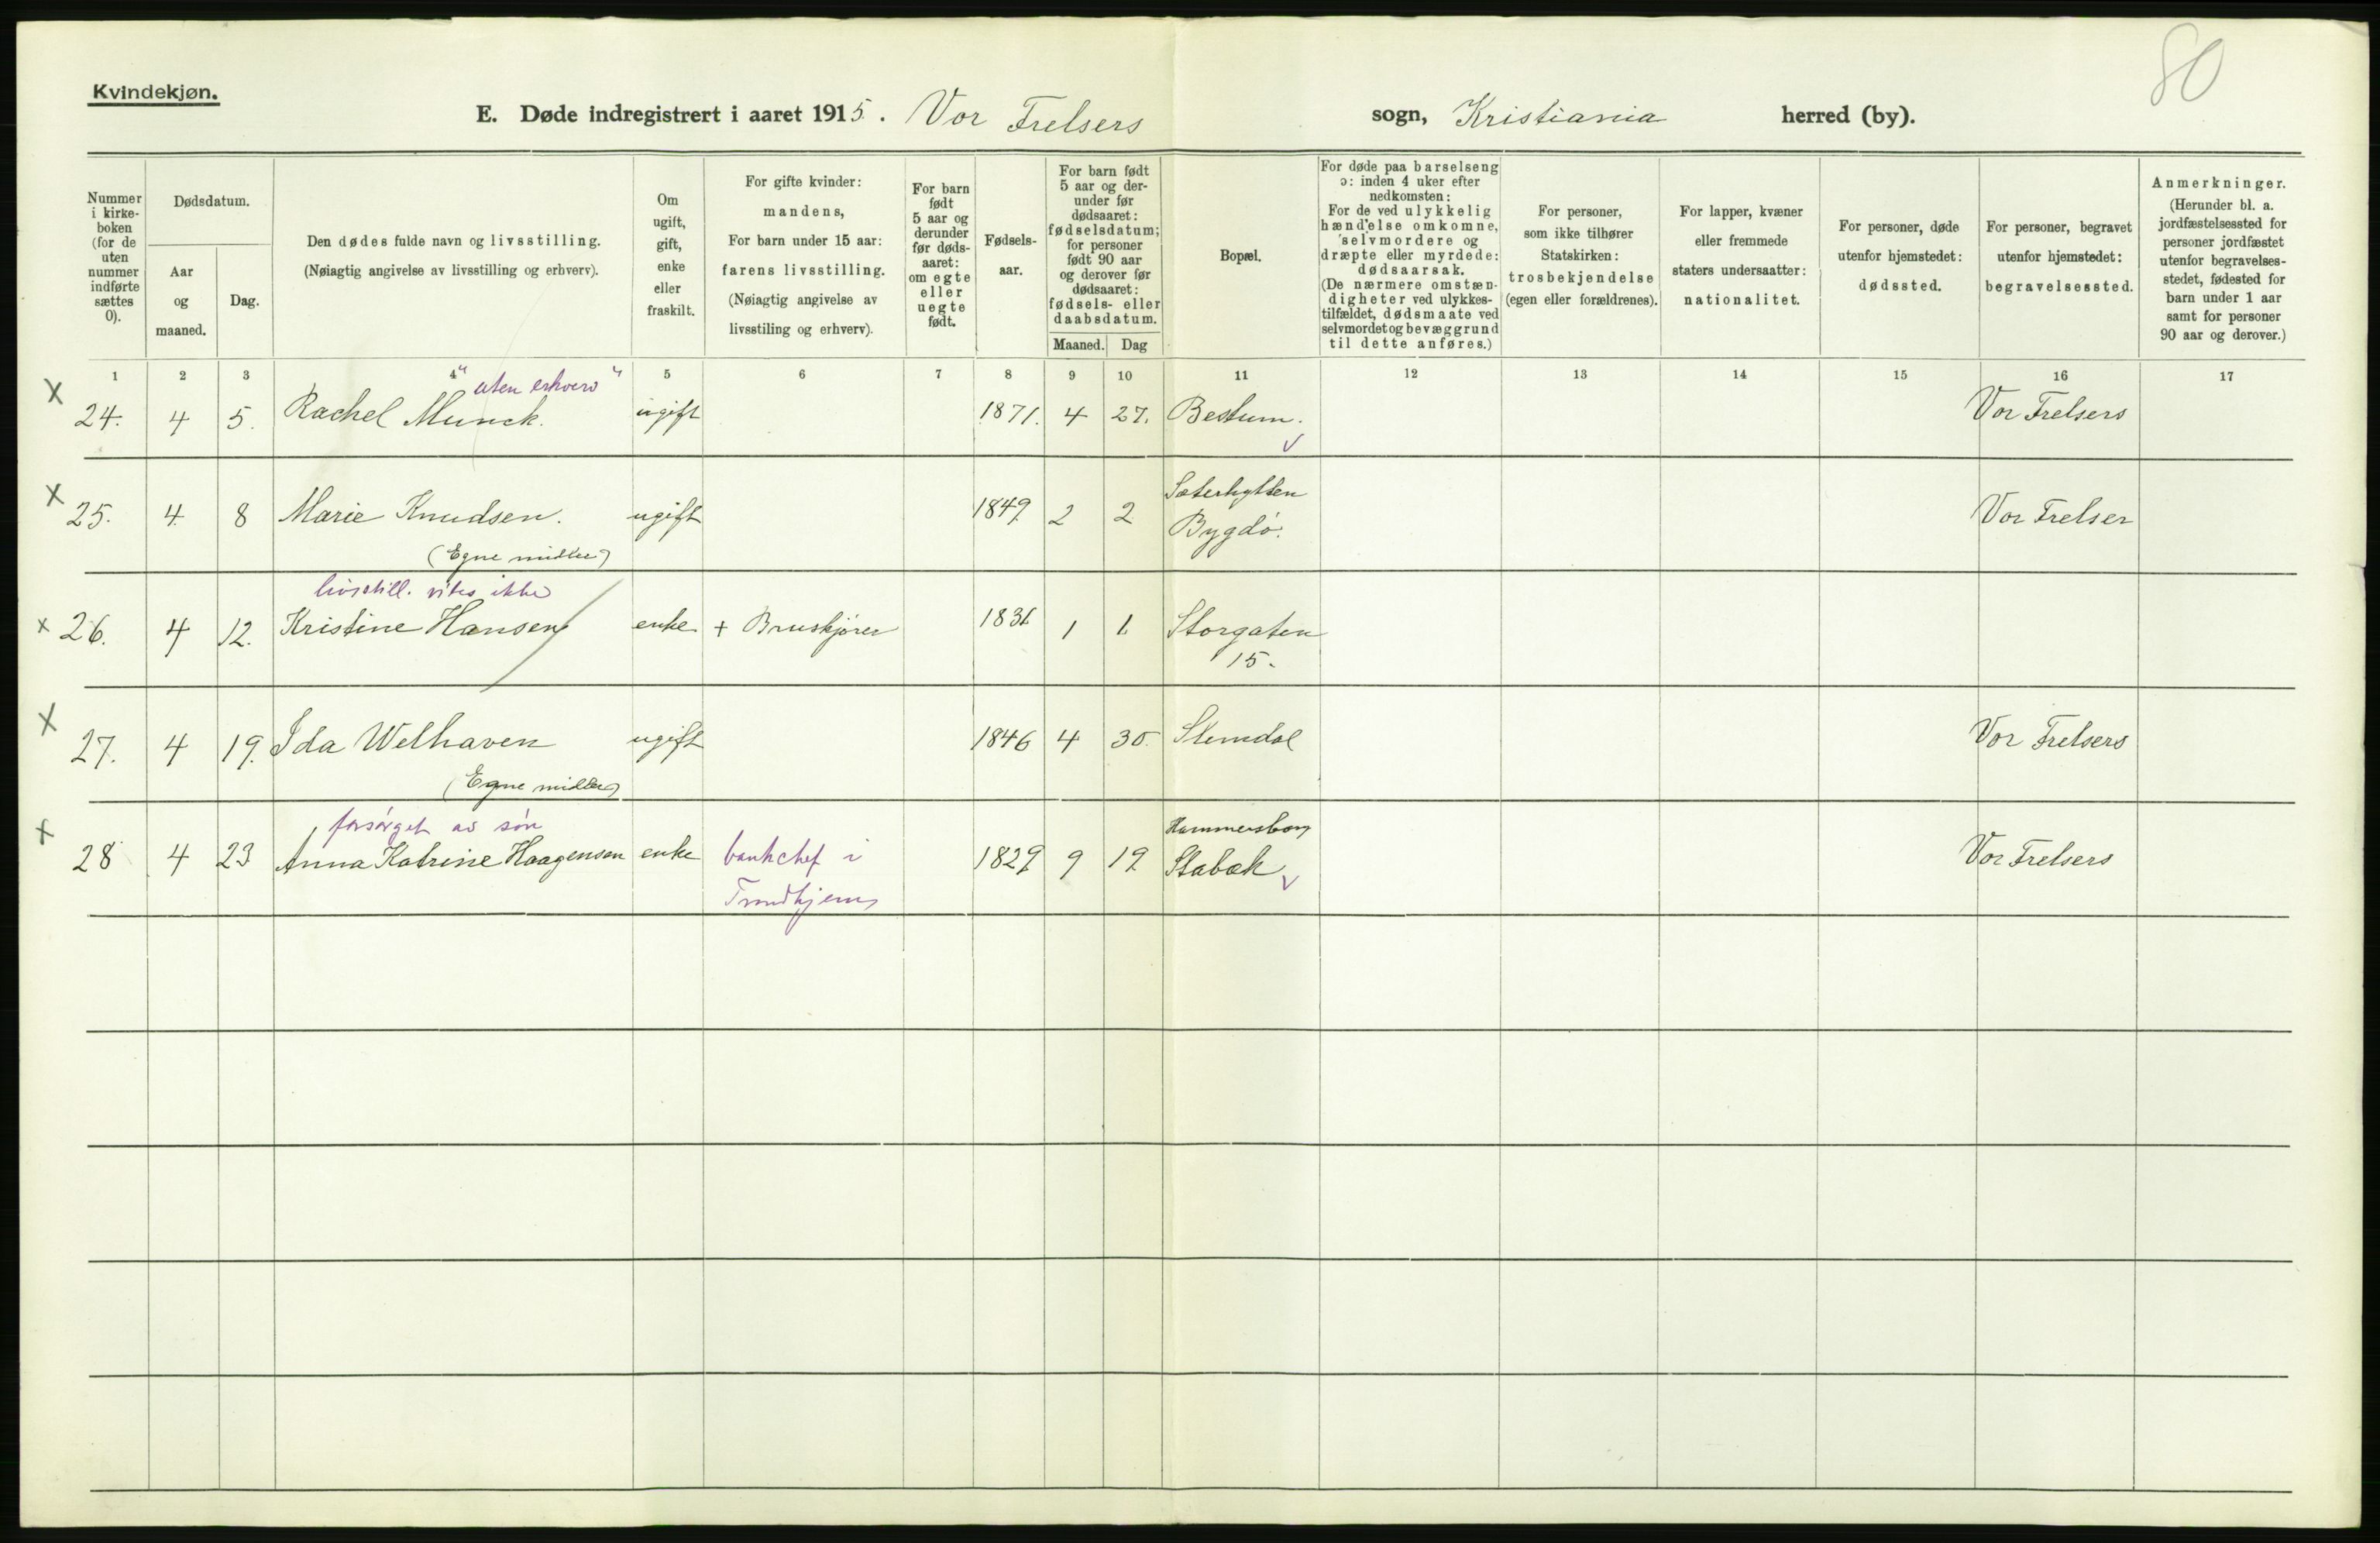 80
Kvindekjøn.
E. Døde indregistrert i aaret 1915. Vor Frelsers sogn, Kristiania herred (by).
Nummer
i kirke-
boken
(for de
uten
nummer
indførte
sættes
0).
Dødsdatum.
Aar
og
maaned.
Dag.
Den dødes fulde navn og livsstilling.
(Nøiagtig angivelse av livsstilling og erhverv).
Om
ugift,
gift,
enke
eller
fraskilt.
For gifte kvinder:
mandens,
For barn under 15 aar:
farens livsstilling.
(Nøiagtig angivelse av
livsstiling og erhverv).
For barn
født
5 aar og
derunder
før døds-
aaret:
om egte
eller
uegte
født.
Fødsels-
aar.
For barn født
5 aar og der-
under før
dødsaaret:
fødselsdatum;
for personer
født 90 aar
og derover før
dødsaaret:
fødsels- eller
daabsdatum.
Maaned. Dag
Bopæl.
For døde paa barselseng
ɔ: inden 4 uker efter
nedkomsten:
For de ved ulykkelig
hændelse omkomne,
selvmordere og
dræpte eller myrdede:
dødsaarsak.
(De nærmere omstæn-
digheter ved ulykkes-
tilfældet, dødsmaate ved
selvmordet og bevæggrund
til dette anføres.)
For personer,
som ikke tilhører
Statskirken:
trosbekjendelse
(egen eller forældrenes).
For lapper, kvæner
eller fremmede
staters undersaatter:
nationalitet.
For personer, døde
utenfor hjemstedet:
dødssted.
For personer, begravet
utenfor hjemstedet:
begravelsessted.
Anmerkninger.
(Herunder bl. a.
jordfæstelsessted for
personer jordfæstet
utenfor begravelses-
stedet, fødested for
barn under 1 aar
samt for personer
90 aar og derover.)
1 2 3 4 5 6 7 8 9 10 11 12 13 14 15 16 17
"uten erhverv"
x 24. 4 5. Rachel Munck. ugift 1871. 4 27. Bestum. Vor Frelsers
Sæterhytten
x 25. 4 8 Marie Knudsen. ugift 1849. 2 2 Bygdø. Vor Frelser
(Egne midler)
livsstill. vites ikke
x 26. 4 12. Kristine Hansen enke + Bruskjører 1831 1 1. Storgaten
15.
x 27. 4 19. Ida Welhaven ugift 1846 4 30. Slemdal Vor Frelsers
(Egne midler)
forsørget av søn Hammersborg
x 28 4 23 Anna Katrine Haagensen enke bankchef i 1829 9 19 Stabæk Vor Frelsers
Trondhjem